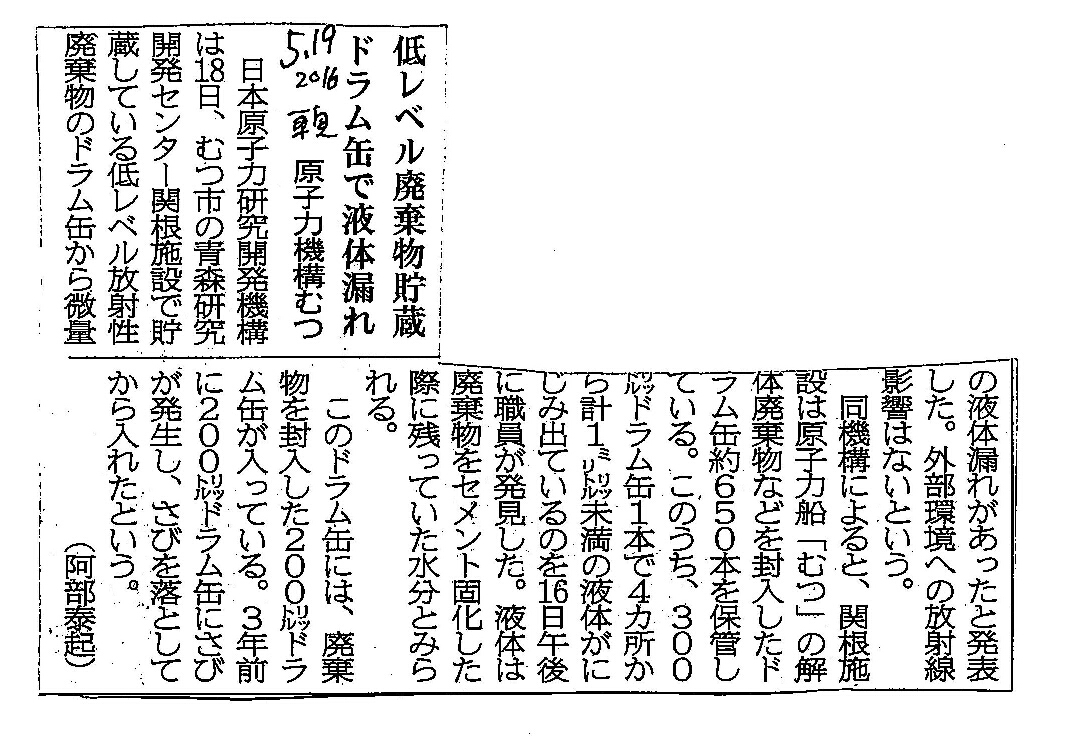 低レベル廃棄物貯蔵
ドラム缶で液体漏れ
5.19
2016
原子力機構むつ
日本原子力研究開発機構
は18日、むつ市の青森研究
開発センター関根施設で貯
蔵している低レベル放射性
廃棄物のドラム缶から微量
の液体漏れがあったと発表
した。外部環境への放射線
影響はないという。
同機構によると、関根施
設は原子力船「むつ」の解
体廃棄物などを封入したド
ラム缶約650本を保管し
ている。このうち、300
リットルドラム缶1本で4カ所か
ら計1ミリリットル未満の液体がに
じみ出ているのを16日午後
に職員が発見した。液体は
廃棄物をセメント固化した
際に残っていた水分とみら
れる。
このドラム缶には、廃棄
物を封入した200リットルドラ
ム缶が入っている。3年前
に200リットルドラム缶にさび
が発生し、さびを落として
から入れたという。
(阿部泰起)